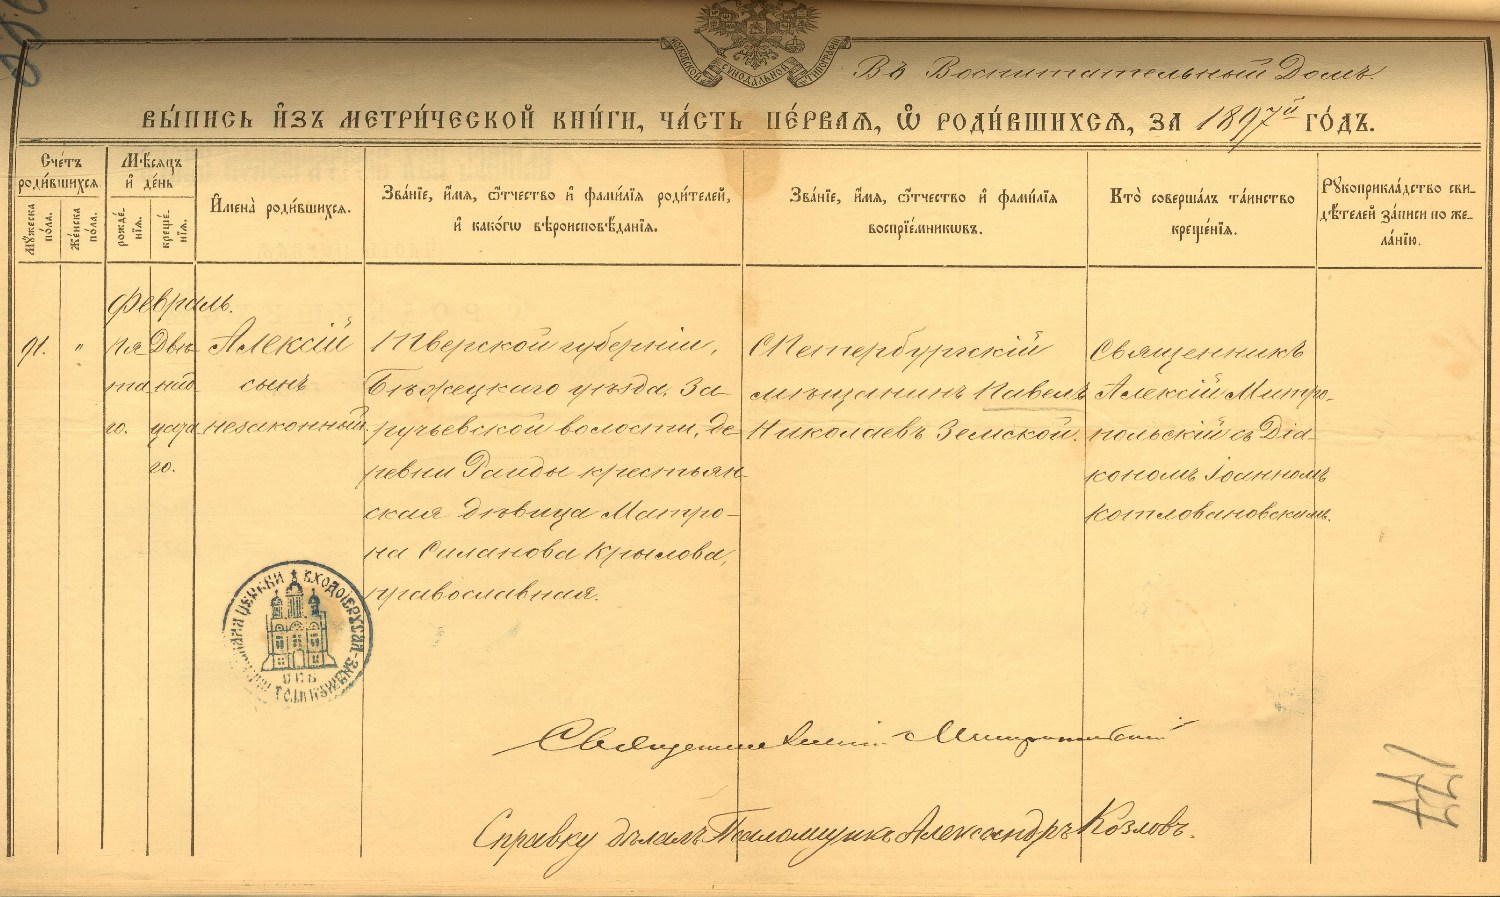 МОСКОВСКОЙ СѴНОДАЛЬНОЙ ТИПОГРАФІИ
Въ Воспитательный Домъ.
ВЫ́ПИСЬ И҆ЗЪ МЕТРИ́ЧЕСКОЙ КНИ́ГИ, ЧА́СТЬ ПЕ́РВАѦ, Ѡ҆ РОДИ́ВШИХСѦ, ЗА 1897й ГО́ДЪ.
Сче́тъ роди́вшихсѧ.
Мꙋ́жеска по́ла.
Же́нска по́ла.
Мѣ́сѧцъ и҆ де́нь
рожде́нїѧ.
креще́нїѧ.
И҆мена̀ роди́вшихсѧ.
Зва́нїе, и҆́мѧ, ѻ҆́тчество и҆ фами́лїѧ роди́телей,
и҆ како́гѡ вѣроисповѣ́данїѧ.
Зва́нїе, и҆́мѧ, ѻ҆́тчество и҆ фами́лїѧ
воспрїе́мникѡвъ.
Кто̀ соверша́лъ та́инство
креще́нїѧ.
Рꙋкоприкла́дство сви-
дѣ́телей за́писи по же-
ла́нїю.
Февраль.
91.
"
Пя
та
го.
Двѣ
над
цата
го.
Алексій
сынъ
незаконный.
Тверской губерніи,
Бѣжецкаго уѣзда, За
ручьевской волости, де
ревни Раиды крестьян-
ская дѣвица Матро-
на Силанова Крылова,
православная.
СПетербургскій
мѣщанинъ Павелъ
Николаевъ Земской.
Священникъ
Алексій Митро-
польскій съ Діа-
кономъ Іоанномъ
Котловановскимъ.
ЦЕРКВИ ВХОДОІЕРУСАЛ-
Священникъ Алексій Митропольскій
Справку дѣлалъ Псаломщикъ Александръ Козловъ.
177